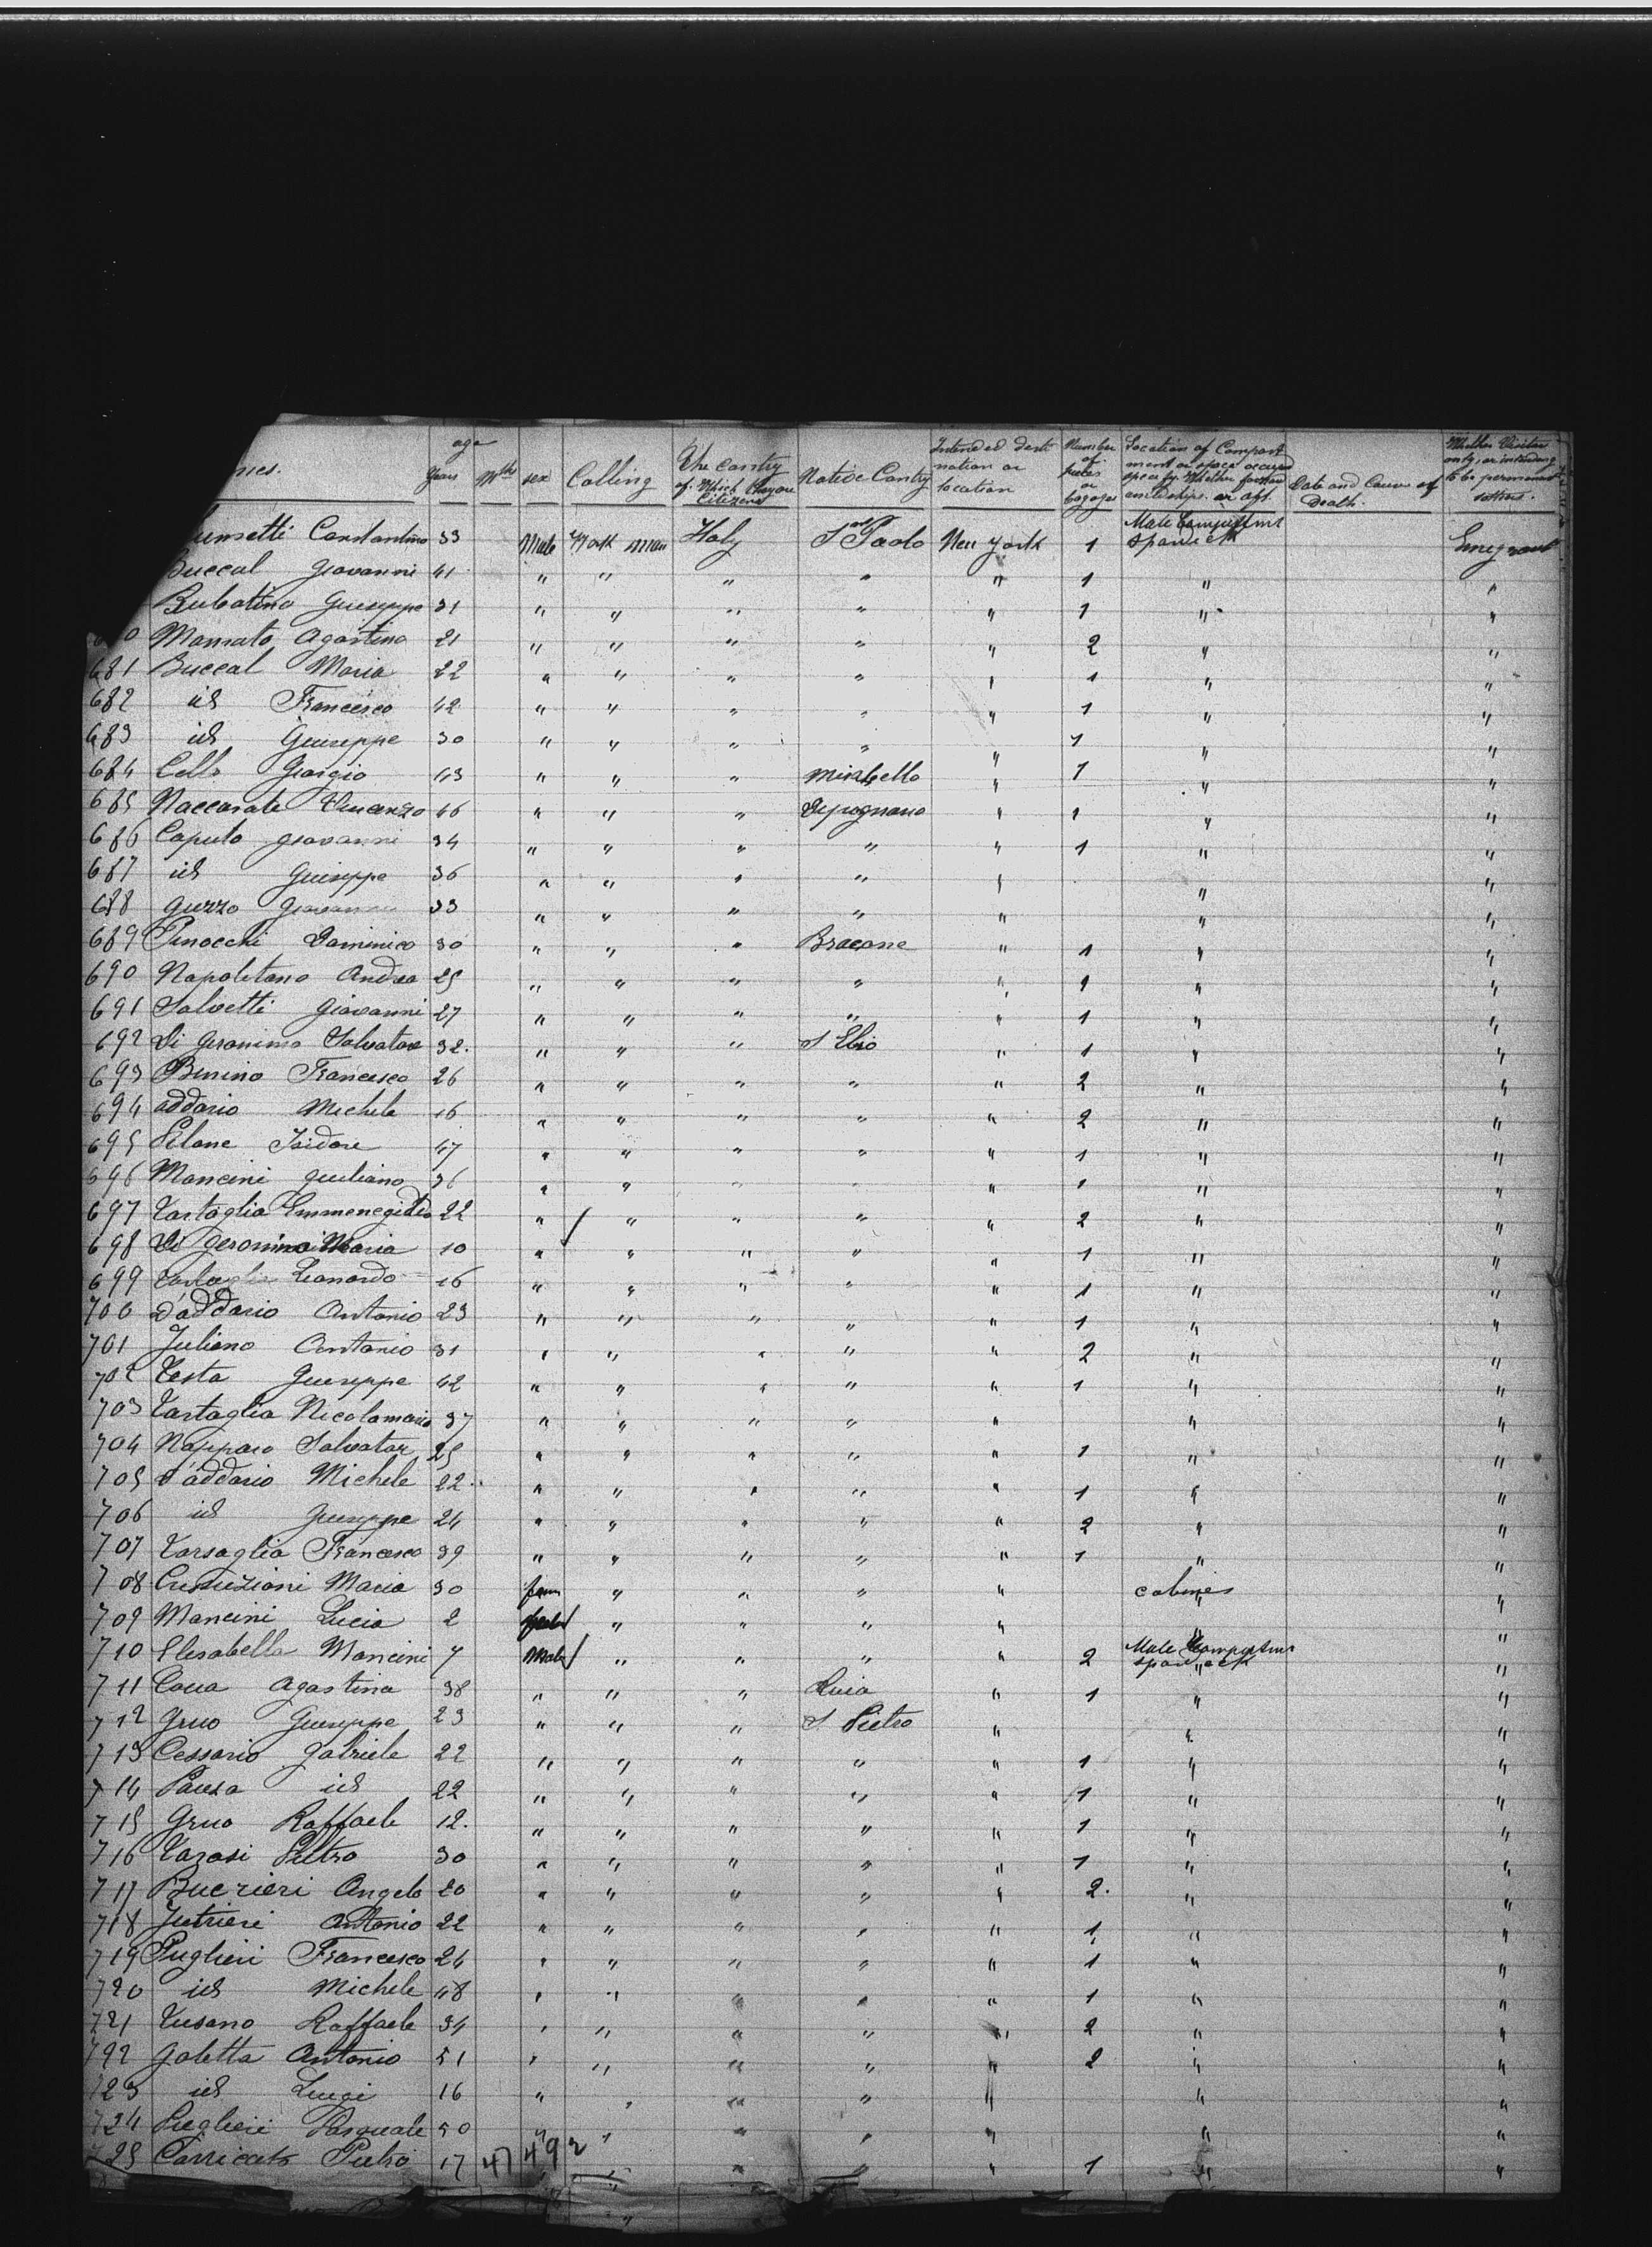 mes. age Years Mths sex Calling The Contry of Which they are Citizens Native Contry Intended desti nation or location Number of pieces or bagages Location of Compart ment or space occupied Date and Cause of Death. Whether Visitor only, or intending to be permanent settlers.
Constantino 33 Male Work man Italy S Paolo New York 1 Male Emigrant
Buccal Giovanni 41 " " " " " 1 " "
Rubatino Giuseppe 31 " " " " " 1 " "
Monsato Agostino 21 " " " " " 2 " "
681 Buccal Maria 22 " " " " " 1 " "
682 id Francesco 42 " " " " " 1 " "
683 id Giuseppe 30 " " " " " 1 " "
684 Cello Giorgio 43 " " " Mirabello " 1 " "
685 Naccarate Vincenzo 46 " " " Depognano " 1 " "
686 Caputo Giovanni 34 " " " " " 1 " "
687 id Giuseppe 36 " " " " " " "
688 Guzzo Giovanni 33 " " " " " " "
689 Pinocchi Dominico 30 " " " Bracone " 1 " "
690 Napoletano Andrea 25 " " " " " 1 " "
691 Salvetti Giovanni 27 " " " " " 1 " "
692 Di Geronimo Salvatore 32. " " " S Elio " 1 " "
693 Benino Francesco 26 " " " " " 2 " "
694 addario Michele 16 " " " " " 2 " "
695 Silane Isidore 47 " " " " " 1 " "
696 Mancini Giuliano 36 " " " " " 1 " "
697 Tartaglia Emmenegildo 22 " " " " " 2 " "
698 Di Geronimo Maria 10 " " " " " 1 " "
699 Tartaglia Leonardo 16 " " " " " 1 " "
700 D'addario Antonio 23 " " " " " 1 " "
701 Juliano Antonio 31 " " " " " 2 " "
702 Testa Giuseppe 42 " " " " " 1 " "
703 Tartaglia Nicolamaria 37 " " " " " " "
704 Nappaio Salvator 25 " " " " " 1 " "
705 d'addario Michele 22 " " " " " 1 " "
706 id Giuseppe 24 " " " " " 2 " "
707 Tarsaglia Francesco 39 " " " " " 1 " "
708 Maria 30 fem " " " " cabines "
709 Mancini Lucia 2 " " " " " "
710 Elisabella Mancini 7 Male " " " " 2 Male "
711 Coua Agostina 38 " " " Luia " 1 " "
712 Gruo Giuseppe 23 " " " S. Pietro " " "
713 Cessario Gabriele 22 " " " " " 1 " "
714 Pausa id 22 " " " " " 1 " "
715 Gruo Raffaele 12. " " " " " 1 " "
716 Tarasi Pietro 30 " " " " " 1 " "
717 Bucrieri Angelo 20 " " " " " 2. " "
718 Jutrieri Antonio 22 " " " " " 1 " "
719 Puglieri Francesco 24 " " " " " 1 " "
720 id Michele 48 " " " " " 1 " "
721 Tusano Raffaele 34 " " " " " 2 " "
792 Goletta Antonio 51 " " " " " 2 " "
723 id Luigi 16 " " " " " " "
724 Puglieri Pasquale 50 " " " " " " "
725 Carricato Pietro 17 47492 " " " " 1 " "